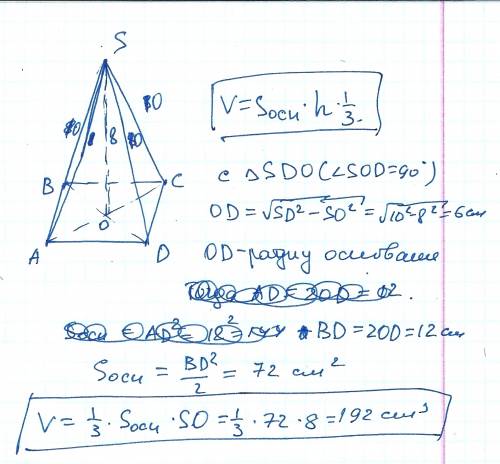 S
10
10
8
8
10
B
C
O
A
D
V = Sосн · h · 1/3.
с △SDO (∠SOD = 90°)
OD = √SD² − SO² = √10² − 8² = 6 см
OD - радиу основание
BD = 2OD = 12 см
Sосн = BD²/2 = 72 см²
V = 1/3 · Sосн · SO = 1/3 · 72 · 8 = 192 см³